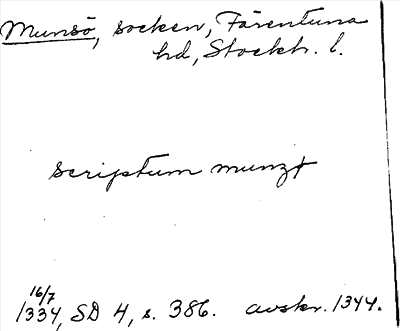 Munsö, socken, Färentuna
hd, Stockh. l.
scriptum munzø
16/7
1334, SD 4, s. 386. avskr. 1344.